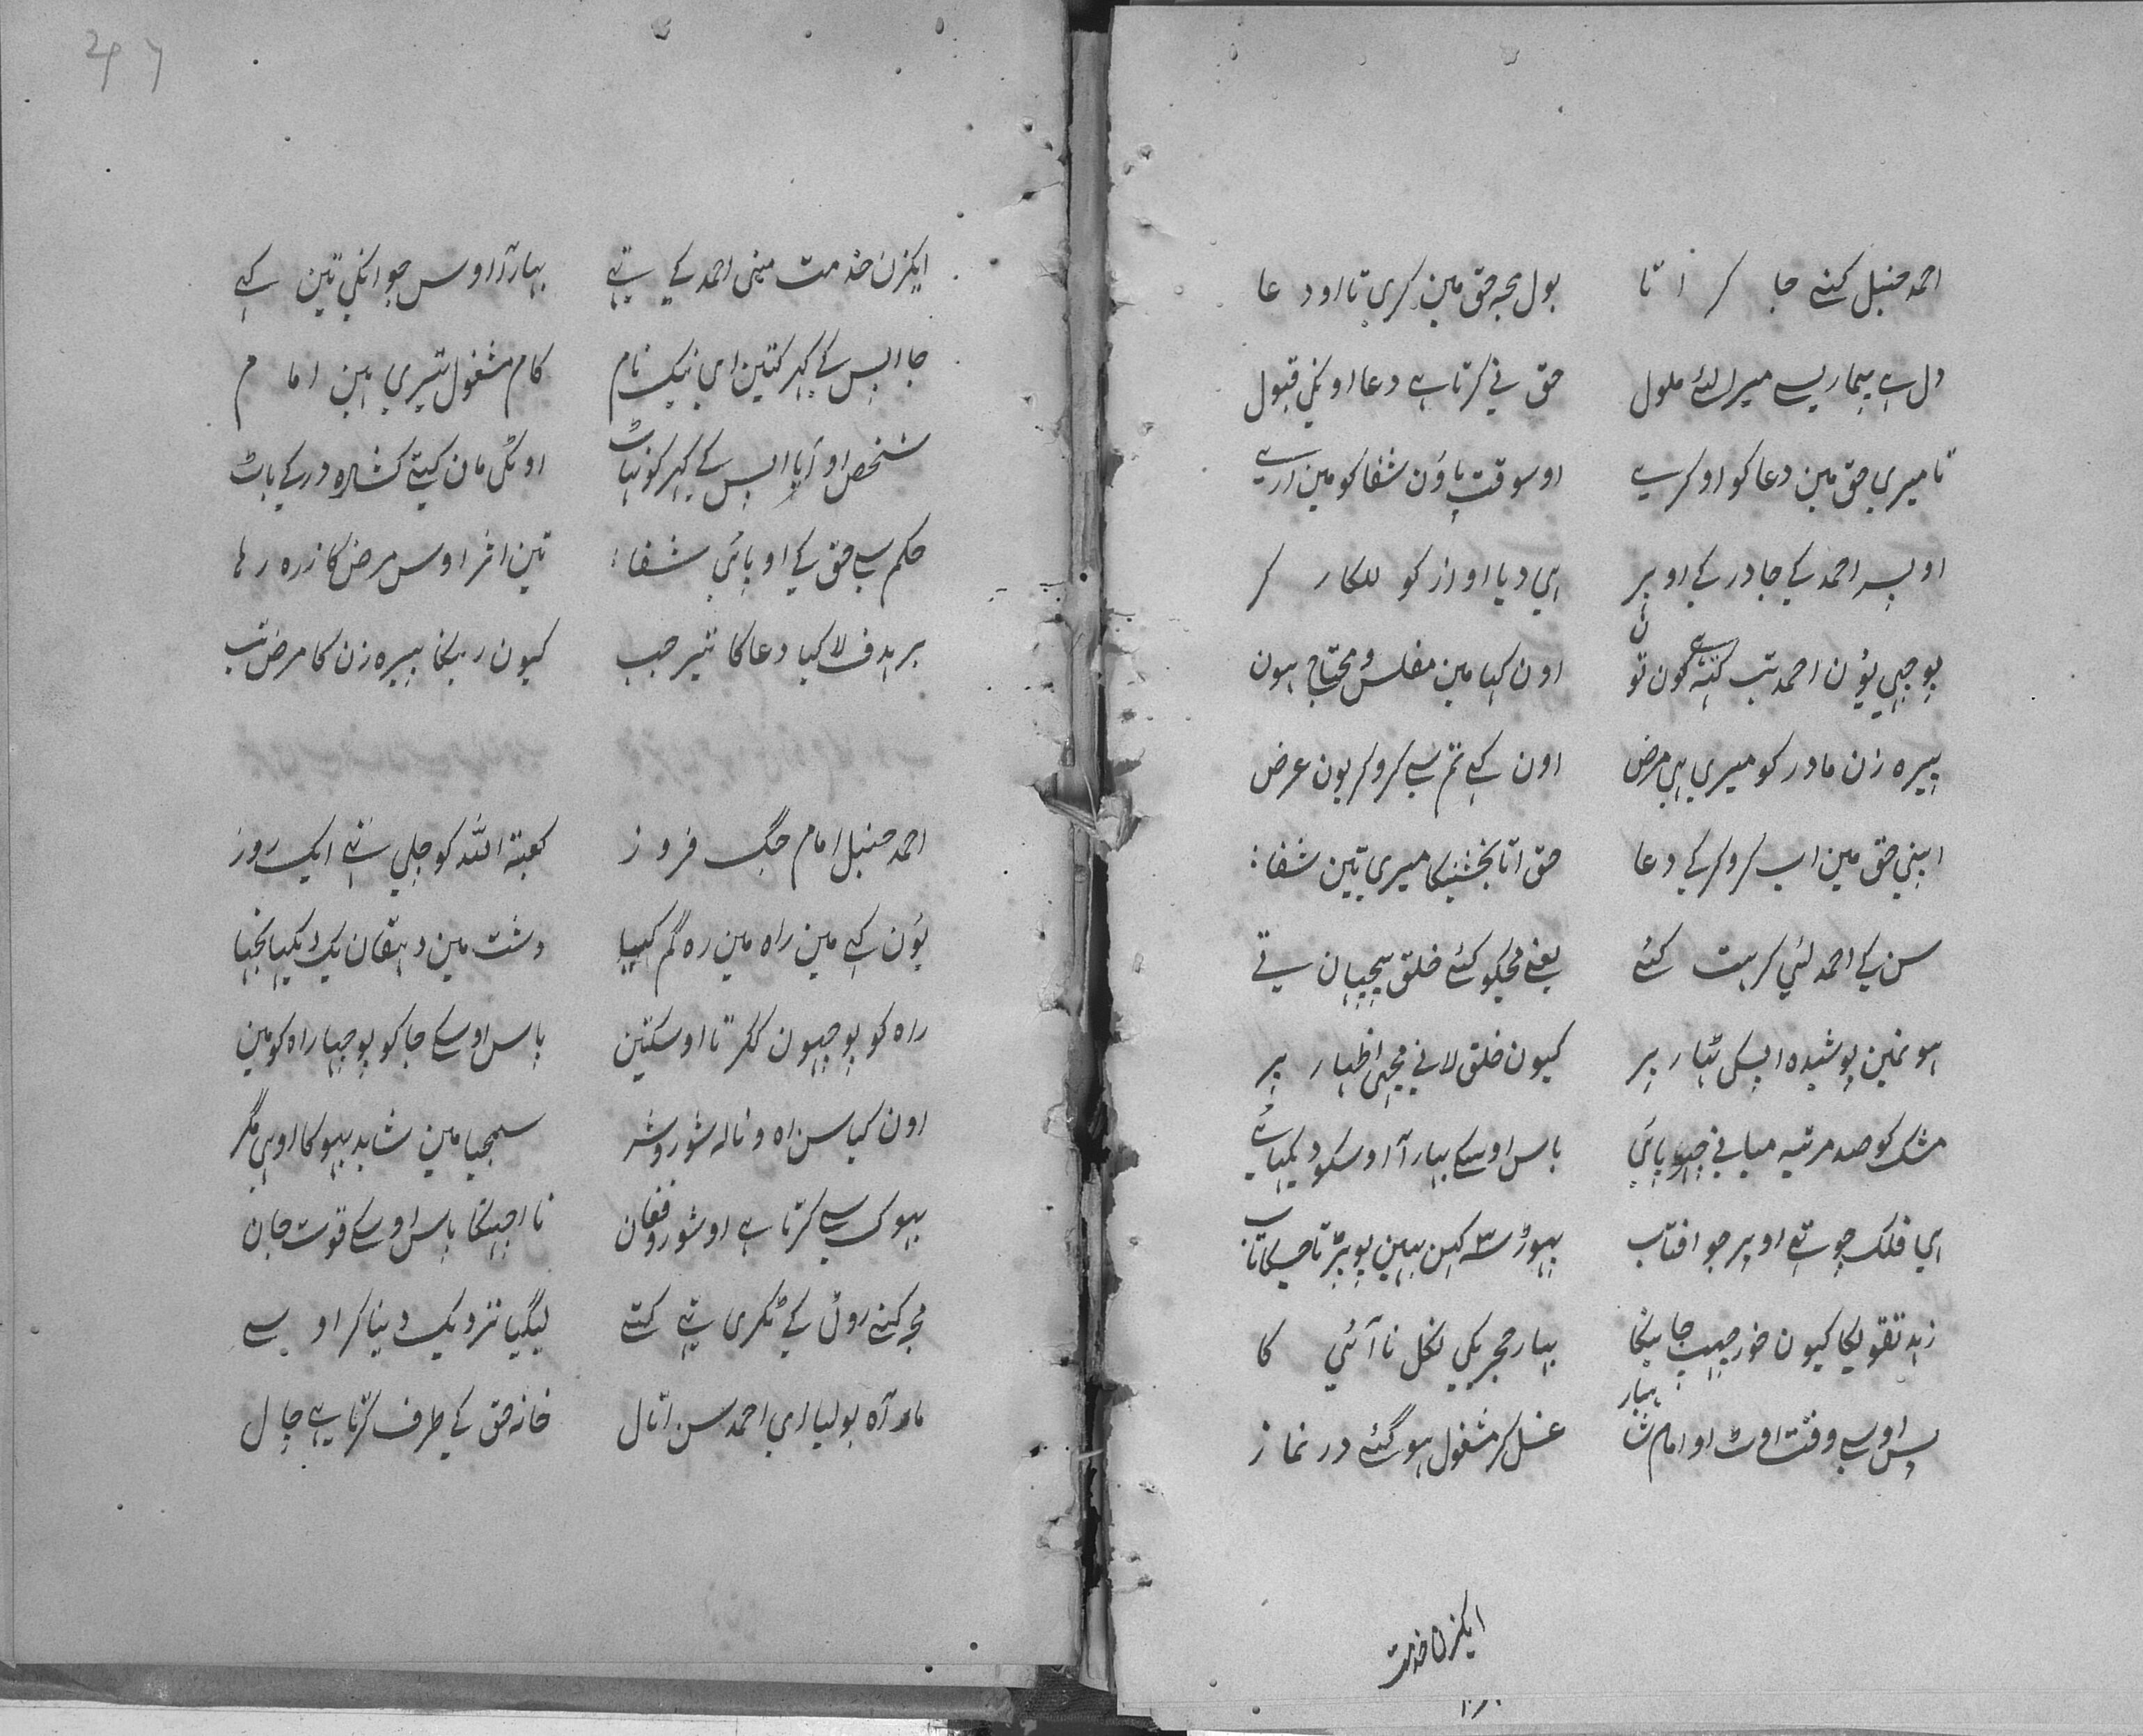 احمد حنبل کنے جا کر اتا بول مجہ حق مین کری تا او دعا
دل ہے بیماریسے میرا لئے ملول حق نی کرتا ہے دعا اونکی قبول
تا میری حق مین دعا کو او کرے اوسوقت پاؤن شفا کو مین ارے
او پسر احمد کے جا در کے اوپر ای دیا اواز کو للکار کر
پوچہی یؤن احمد تب کہتے کون تو اون کہا مین مفلس و محتاج ہون
پیرہ زن مادر کو میری ہی مرض اون کہے تم سے کرو کر یون عرض
اپنی حق مین اب کرو کرکے دعا حق اتا بخشیگا میری تین شفا
سن کے احمد لئی کرہت کئے یعنے مجکو کئے خلق پیچان تے
ہو نمین پوشیدہ اپسکی ٹہار پر کیون خلق لانے مجہی اظہار پر
مشک کو صد مرتبہ میانے چہپائی باس اوسکے بہار آ اوسکو دیکہائے
ای فلک جو تے اوپر جو افتاب
زہد تقویکا کیون خور چہپ جائیگا بہار حجریکی نکل نا آئی کا
پس اوسے وقت اوٹ او امام غسل کر مشغول ہو گئے در نماز
ایکزن خدمت
ایکزن خدمت مینی احمد کے تہے بہار آ اوس جو انکی تین کہے
جا اپس کے گہر کتین ای نیک نام کام مشغول تیری ہین امام
شخص او آیا اپس کے گہر کو نہاٹ اونکی مان کیتے کشادہ در کے باٹ
حکم سے حق کے او پائی شفا نین اثر اوس مرض کا ذرہ رہا
بر ہدف لاگیا دعا کا تیر جب کیون رہیگا پیرہ زن کا مرض تب
احمد حنبل امام جگ فروز کعبۃ اللہ کو چلی تہے ایک روز
یؤن کہے مین راہ مین رہ گم کیا دشت مین دہقان یک دیکہیا
راہ کو پوچہون ککر تا اوسکتین پاس اوسکے جا کو پوچہیا راہ کو مین
اون کیا سن اہ و نالہ شور و شر سمجہیا مین شاید بہوکا اوہی مگر
بہوک سے کرتا ہے او شور و فغان نا اچہیگا پاس اوسکے قوت جان
مجہ کنے روٹی کے ٹکری تہے کتے لیگیا نزدیک دینا کر اوسے
مار آہ بولیا ای احمد سن اتال خانہ حق کے طرف کرتا ہے چال